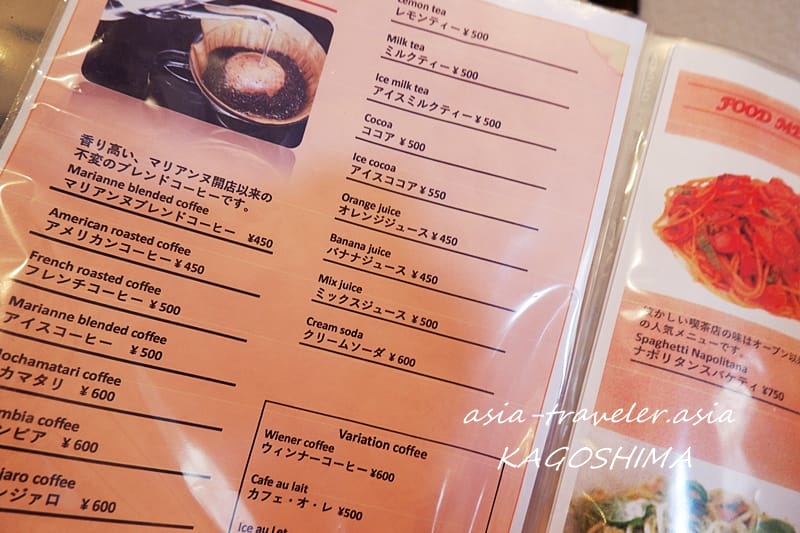 香り高い、マリアンヌ開店以来の
不変のブレンドコーヒーです。
Marianne blended coffee
マリアンヌブレンドコーヒー ¥450
American roasted coffee
アメリカンコーヒー ¥450
French roasted coffee
フレンチコーヒー ¥500
Marianne blended coffee
アイスコーヒー ¥500
coffee
カマタリ ¥600
coffee
ンビア ¥600
coffee
ンジァロ ¥600
Lemon tea
レモンティー ¥500
Milk tea
ミルクティー ¥500
Ice milk tea
アイスミルクティー ¥500
Cocoa
ココア ¥500
Ice cocoa
アイスココア ¥550
Orange juice
オレンジジュース ¥450
Banana juice
バナナジュース ¥450
Mix juice
ミックスジュース ¥500
Cream soda
クリームソーダ ¥600
Variation coffee
Wiener coffee
ウィンナーコーヒー ¥600
Cafe au lait
カフェ・オ・レ ¥500
Ice au Let
FOOD
懐かしい喫茶店の味はオープン以
の人気メニューです。
Spaghetti Napolitana
ナポリタンスパゲティ ¥750
asia-traveler.asia
KAGOSHIMA